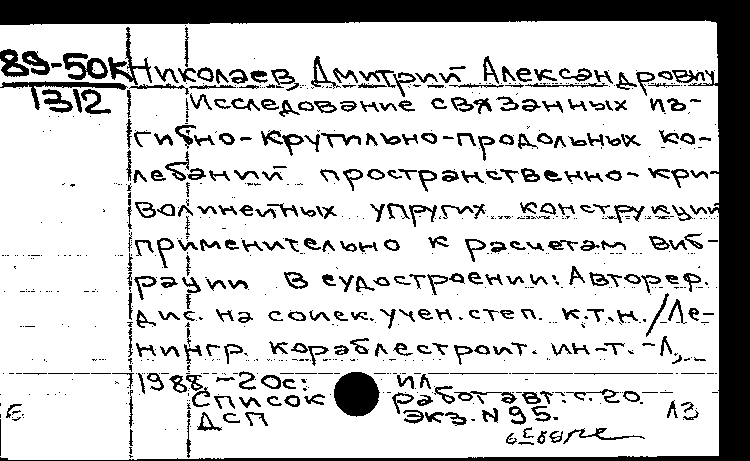 89-50к Николаев, Дмитрий Александрович
1312 Исследование связанных из-
гибно-крутильно-продольных ко-
лебаний пространственно-кри-
волинейных упругих конструкций
применительно к расчетам виб-
рации в судостроении: Автореф.
дис. на соиск. учен. степ. к.т.н. / Ле-
нингр. кораблестроит. ин-т. - Л,
1988. - 20с: ил
Список работ авт: с. 20.
ДСП экз. N 95.
Б ЛЗ